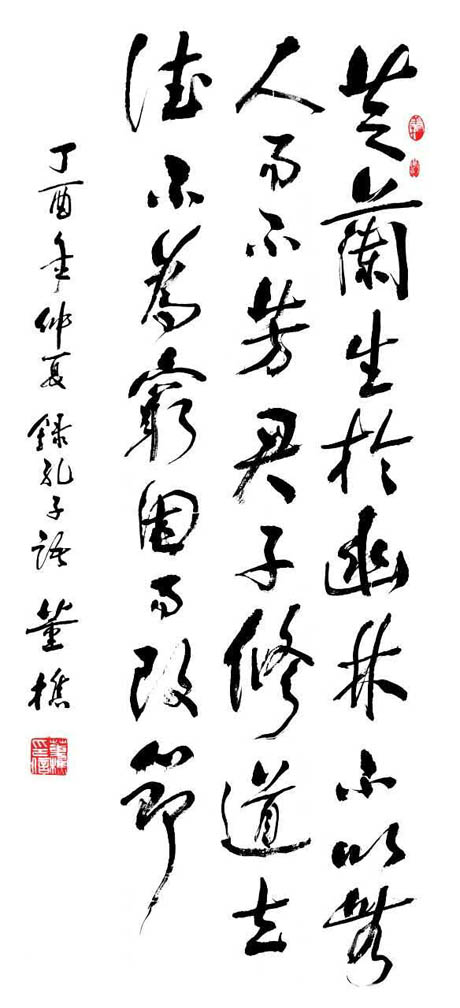 芝蘭生於幽林不以無
人而不芳君子修道立
德不為窮困而改節
丁酉年仲夏錄孔子語 董樵